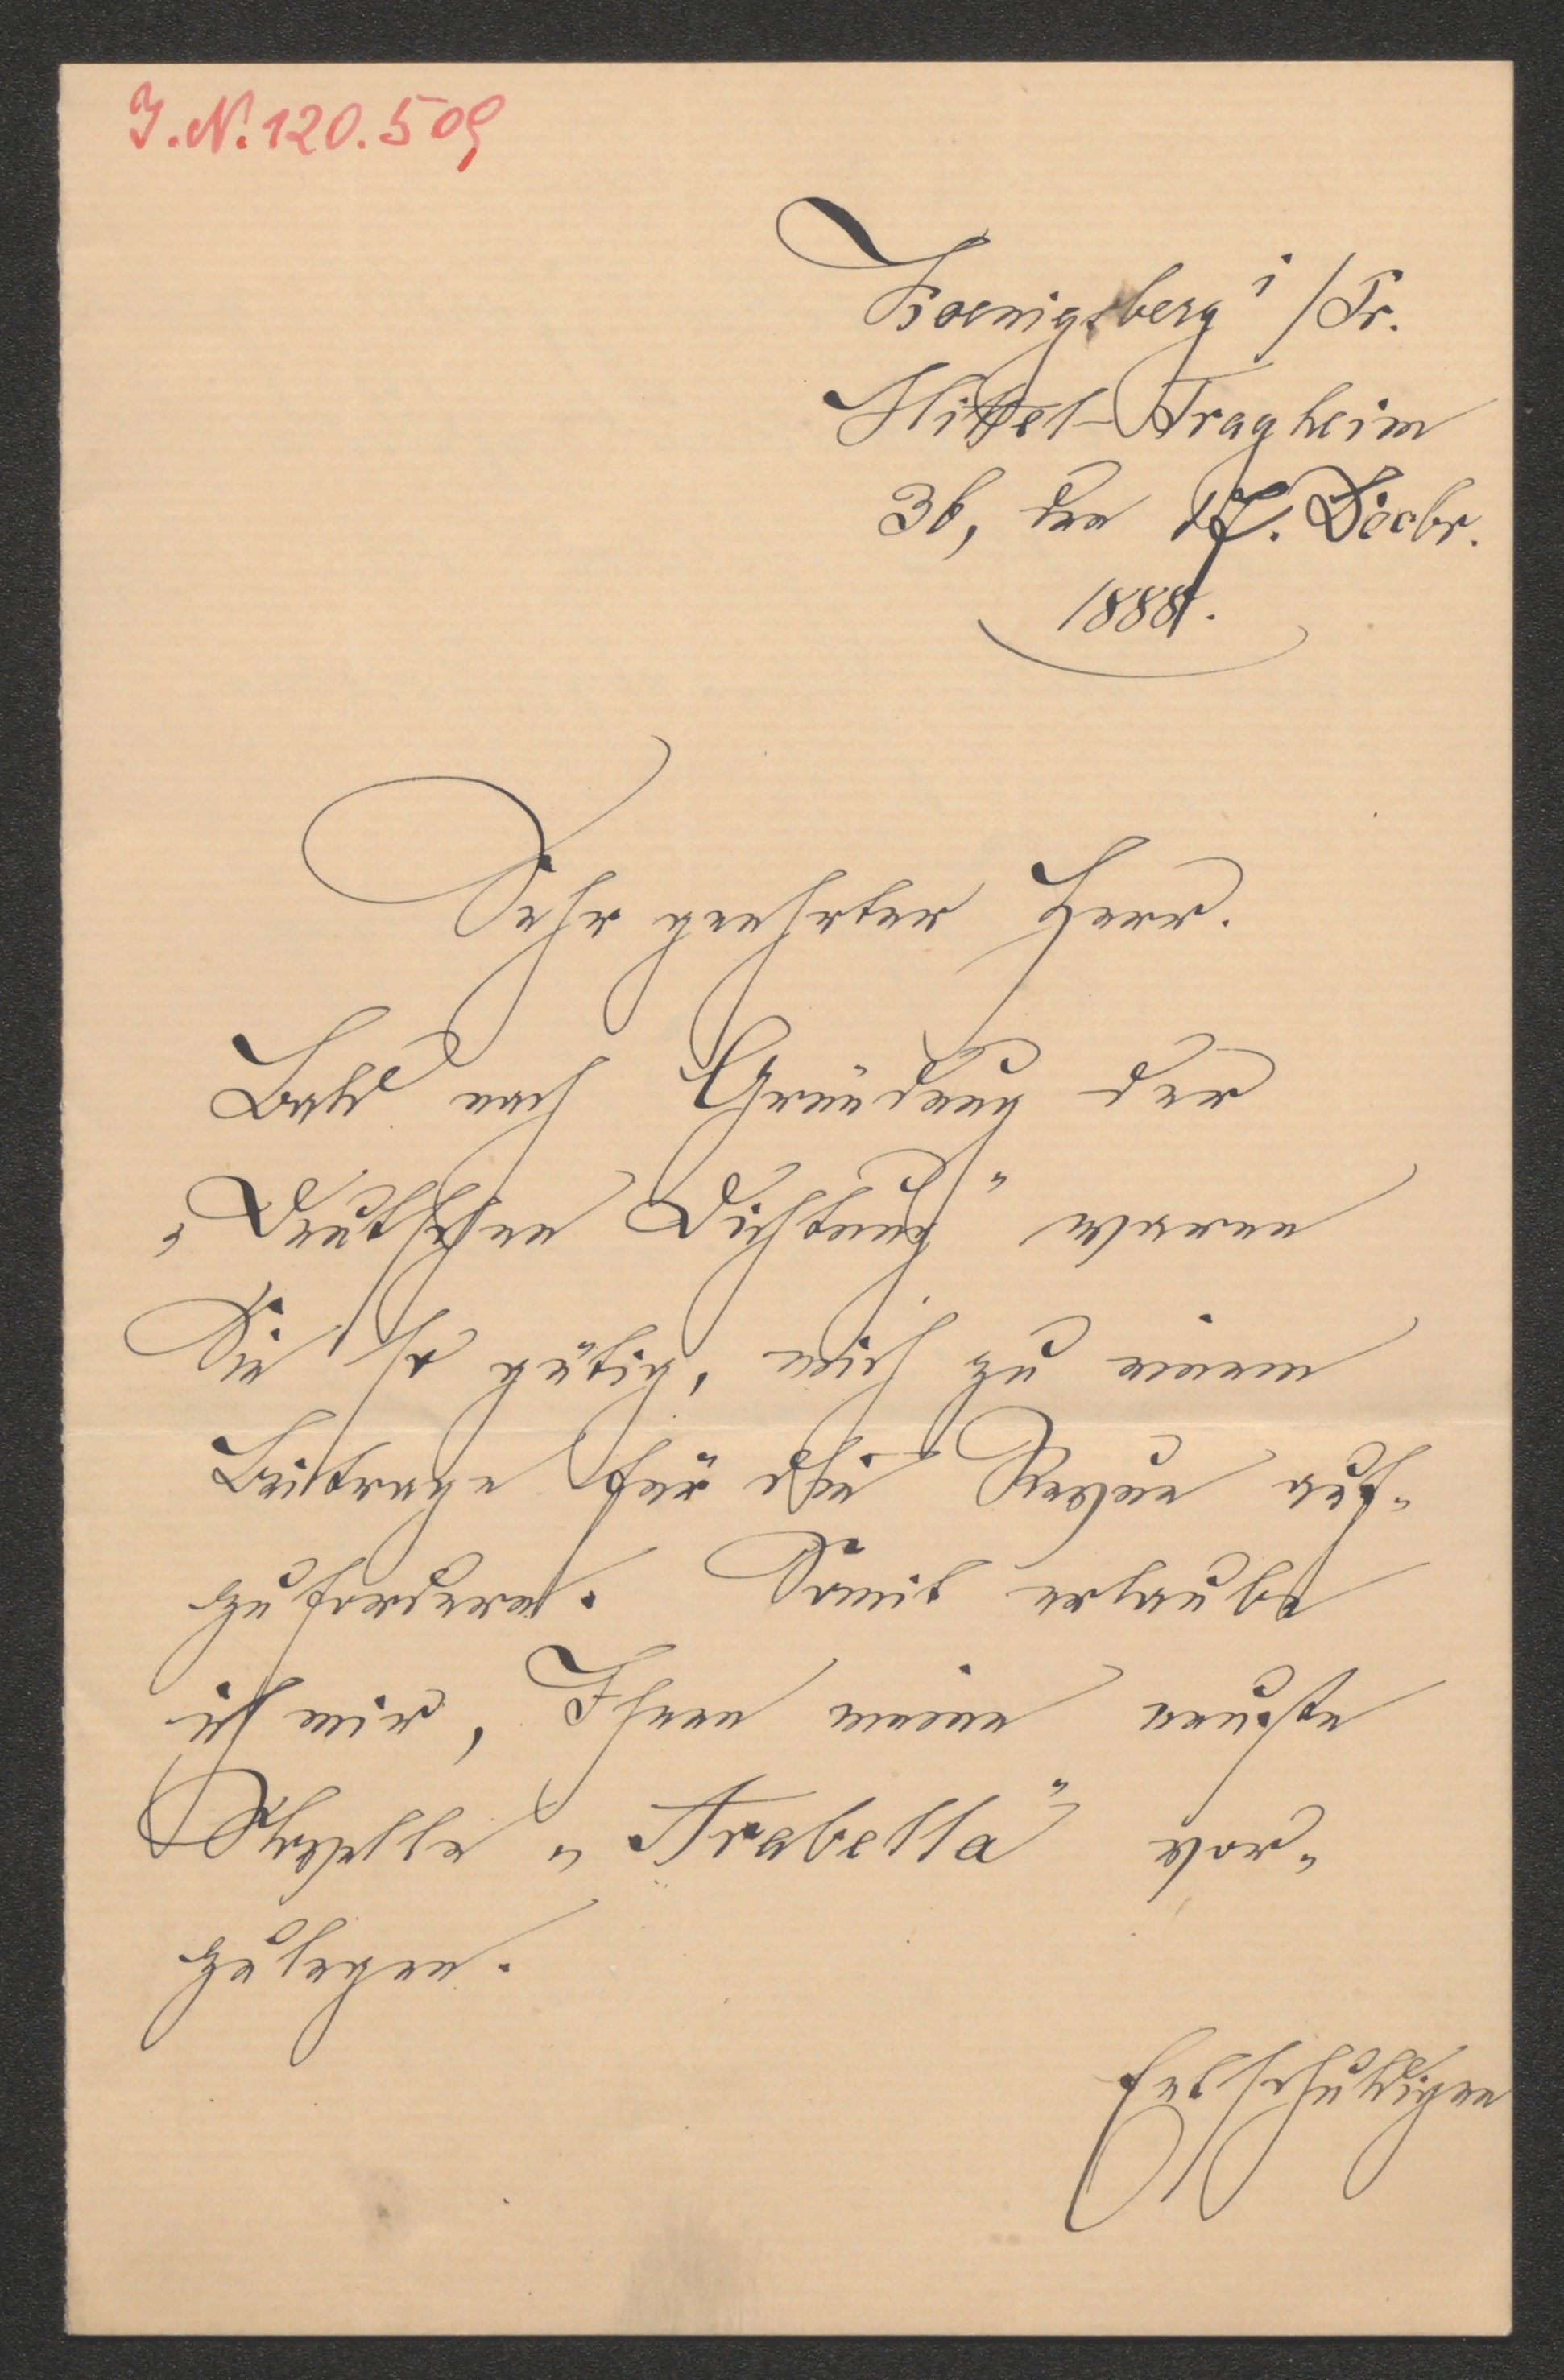 J.N. 120.509
Koenigsberg i/Pr.
Mittel-Tragheim
36, den 17. Decbr.
1888.
Sehr geehrter Herr.
Bald nach Gründung der
„Deutschen Dichtung“ waren
Sie so gütig, mich zu einem
Beitrage für die Revue auf-
zufordern. Somit erlaube
ich mir, Ihnen meine neuste
Novelle „Arabella“ vor-
zulegen.
Entschuldigen